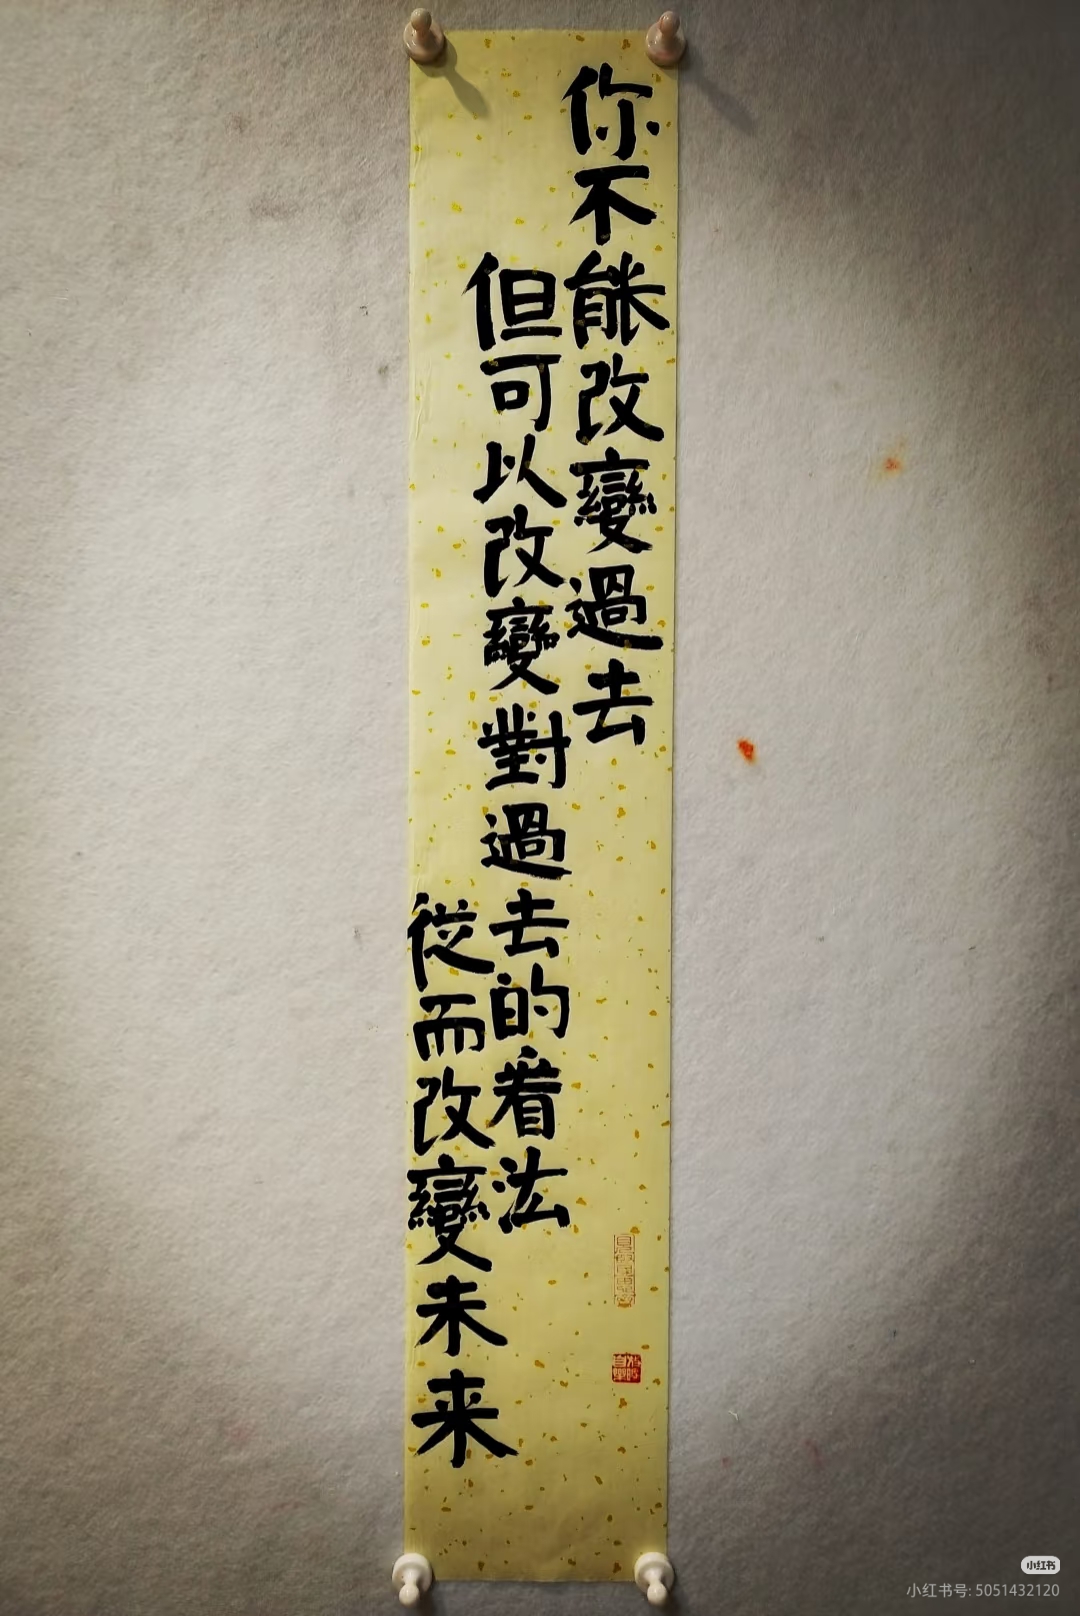 你不能改變過去
但可以改變對過去的看法
從而改變未來
小红书
小红书号: 5051432120